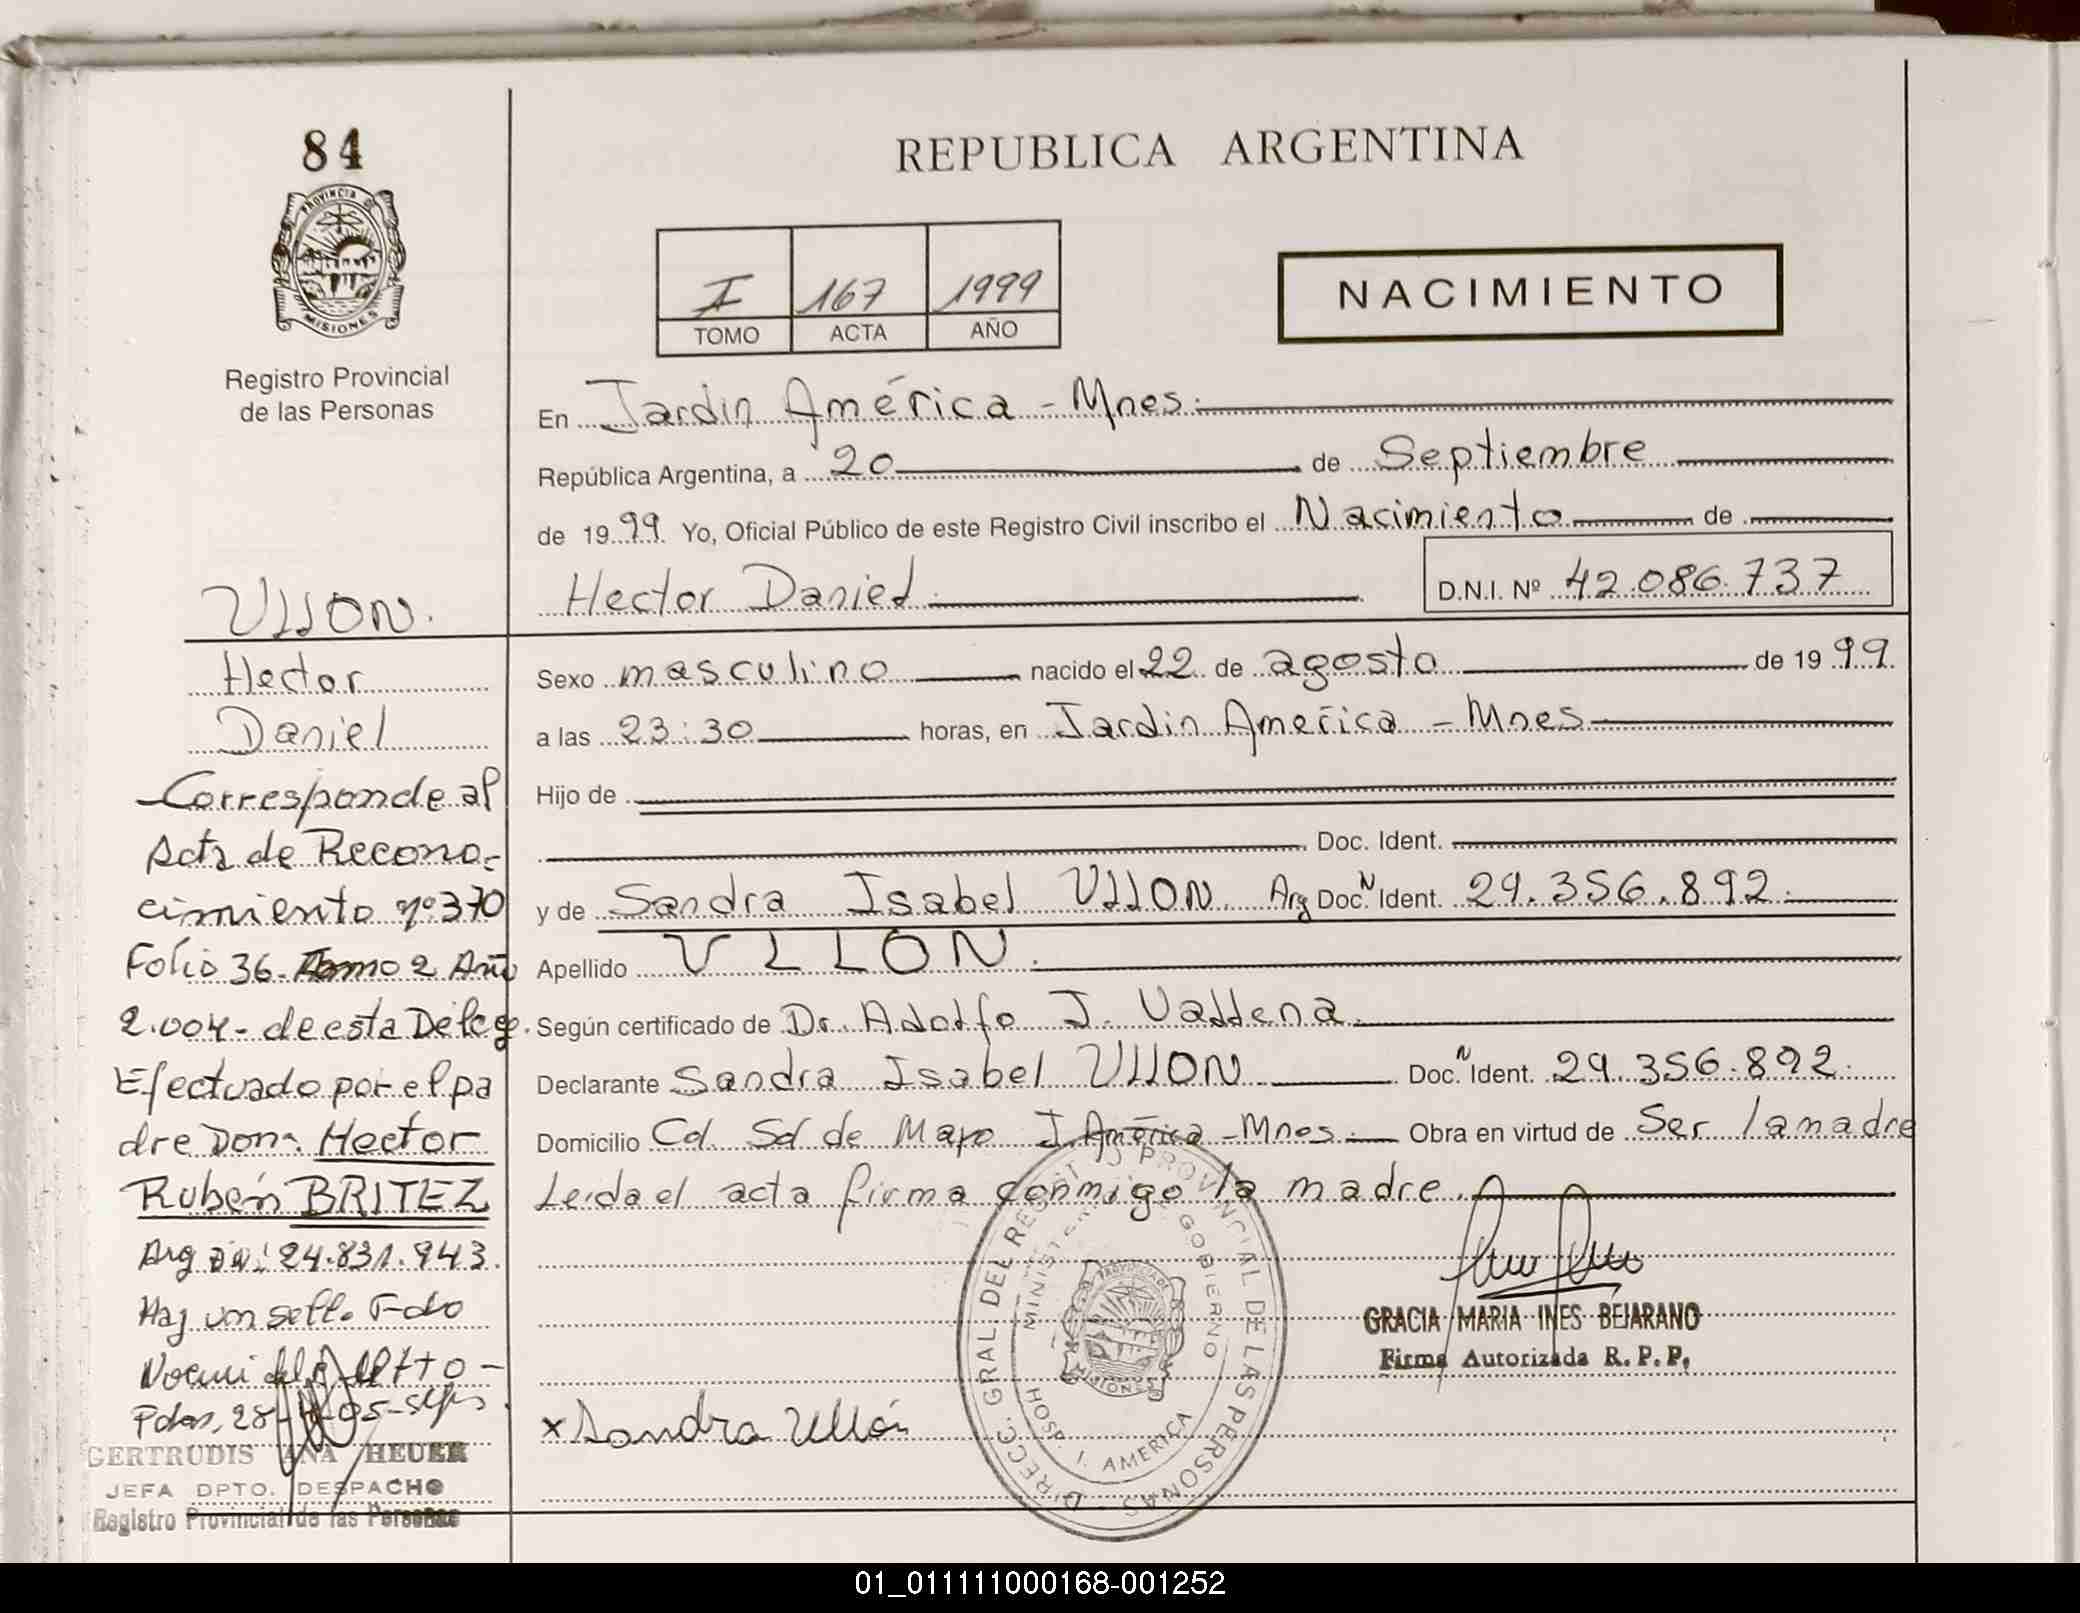 84
REPUBLICA ARGENTINA
PROVINCIA DE
MISIONES
Registro Provincial
de las Personas
I 167 1999
TOMO ACTA AÑO
NACIMIENTO
En Jardin América - Mnes.
República Argentina, a 20 de Septiembre
de 1999 Yo, Oficial Público de este Registro Civil inscribo el Nacimiento de
Hector Daniel D.N.I. Nº 42.086.737
Sexo masculino nacido el 22 de agosto de 1999
a las 23:30 horas, en Jardin America - Mnes
Hijo de
Doc. Ident.
y de Sandra Isabel ULLON Arg Doc. N Ident. 29.356.892.
Apellido ULLON.
Según certificado de Dr. Adolfo J. Valdena.
Declarante Sandra Isabel ULLON Doc. N Ident. 29.356.892.
Domicilio Cd. Sd de Mayo J. América - Mnes. Obra en virtud de Ser la madre
Leida el acta firma conmigo la madre.
ULLON.
Hector
Daniel
Corresponde al
Acta de Recono-
cimiento nº 370
Folio 36 - Tomo 2 Año
2.004 - de esta Deleg.
Efectuado por el pa
dre Don: Hector
Rubén BRITEZ
Arg DNI 24.831.943.
Hay un sello Fdo
Pdas, 28
GERTRUDIS ANA HEUER
JEFA DPTO. DESPACHO
Registro Provincial de las Personas
x Sandra Ullón
DIRECC. GRAL DEL REGISTRO PROVINCIAL DE LAS PERSONAS
MINISTERIO GOBIERNO
PROVINCIA DE
MISIONES
HOSP. J. AMERICA
GRACIA MARIA INES BEJARANO
Firma Autorizada R. P. P.
01_011111000168-001252